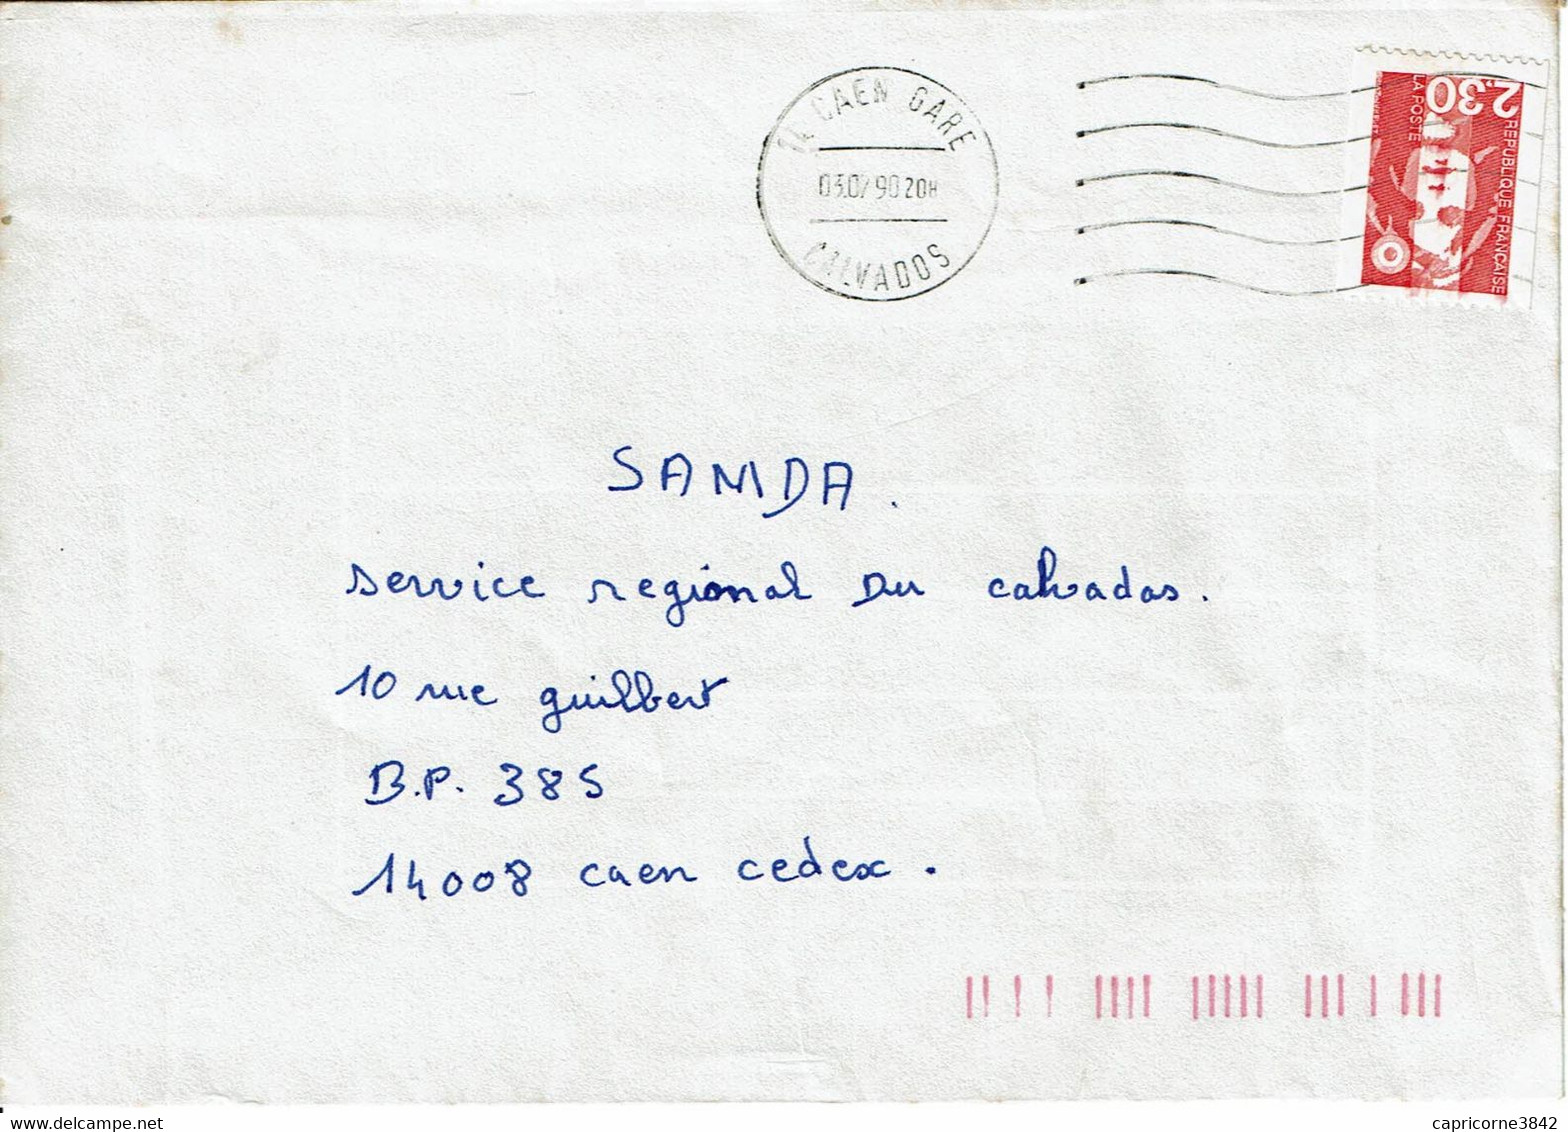 14 CAEN GARE
90 20H
CALVADOS
2,30
REPUBLIQUE FRANÇAISE
LA POSTE
SANDA.
service regional Du calvados.
10 rue guilbert
B.P. 385
14008 caen cedex.
www.delcampe.net
capricorne3842